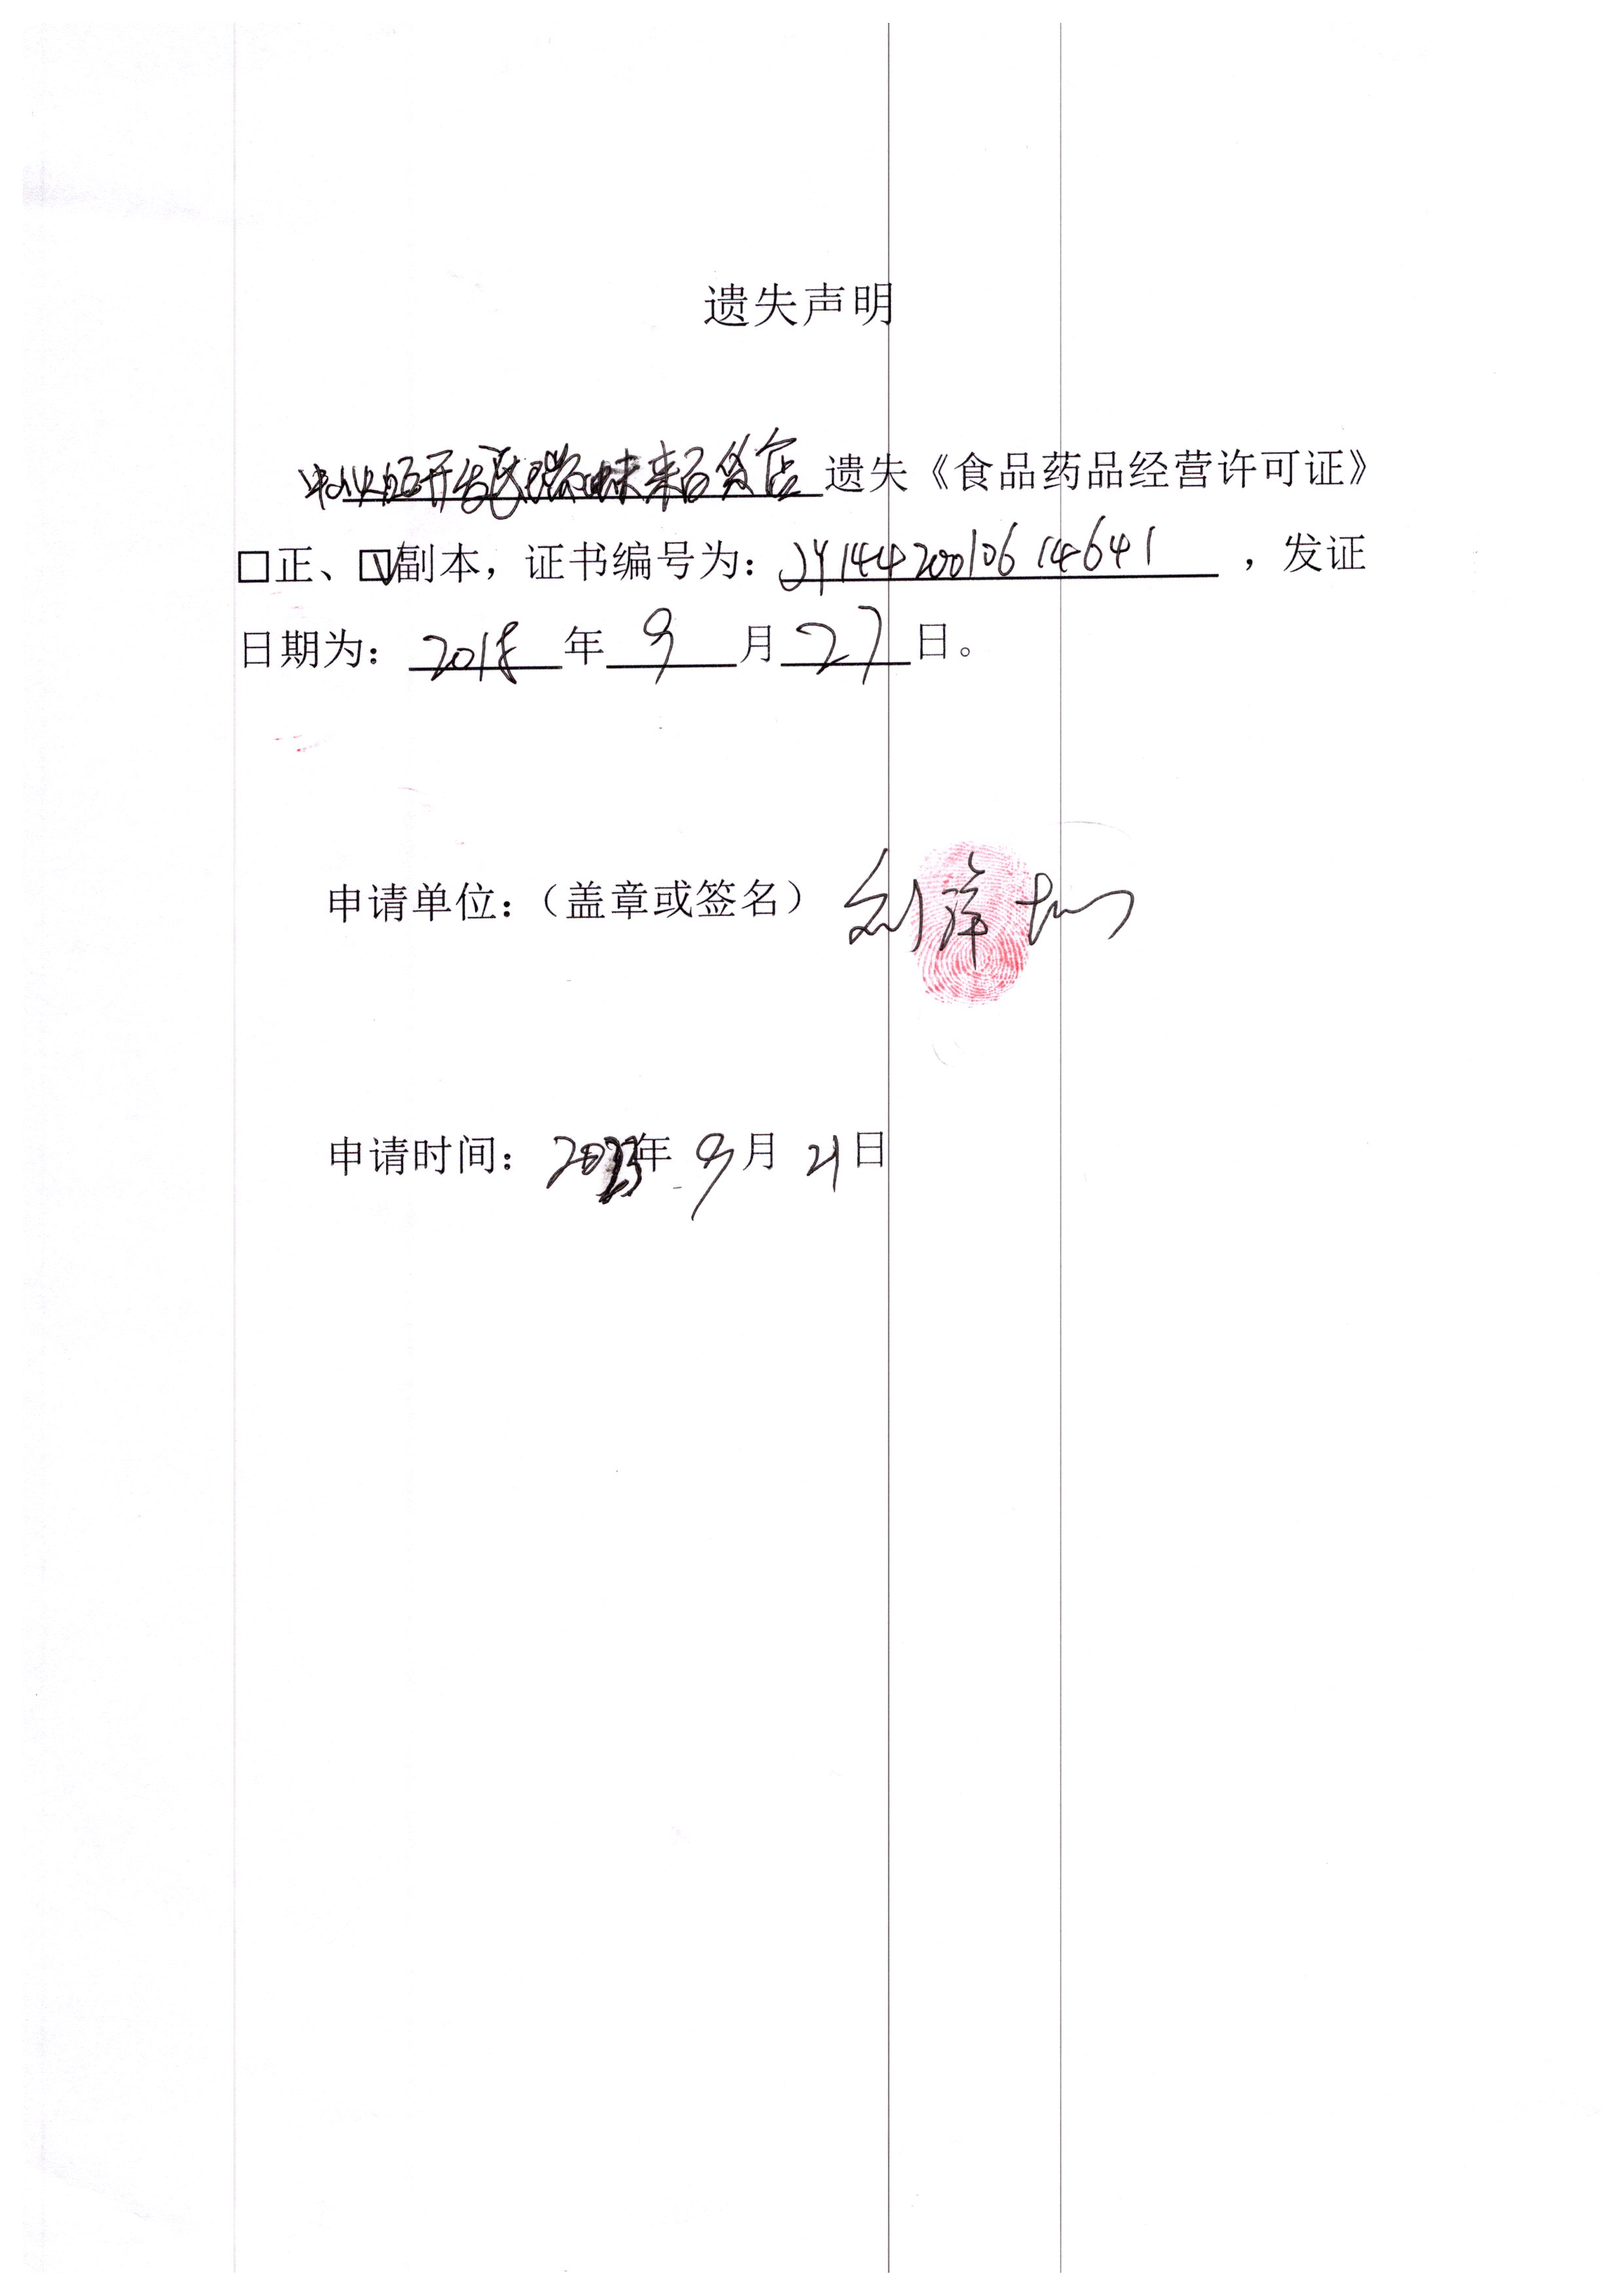 遗失声明
遗失《食品药品经营许可证》
□正、☑副本，证书编号为：JY14420010614641，发证
日期为：2018年9月27日。
申请单位：（盖章或签名）
申请时间：2023年9月21日